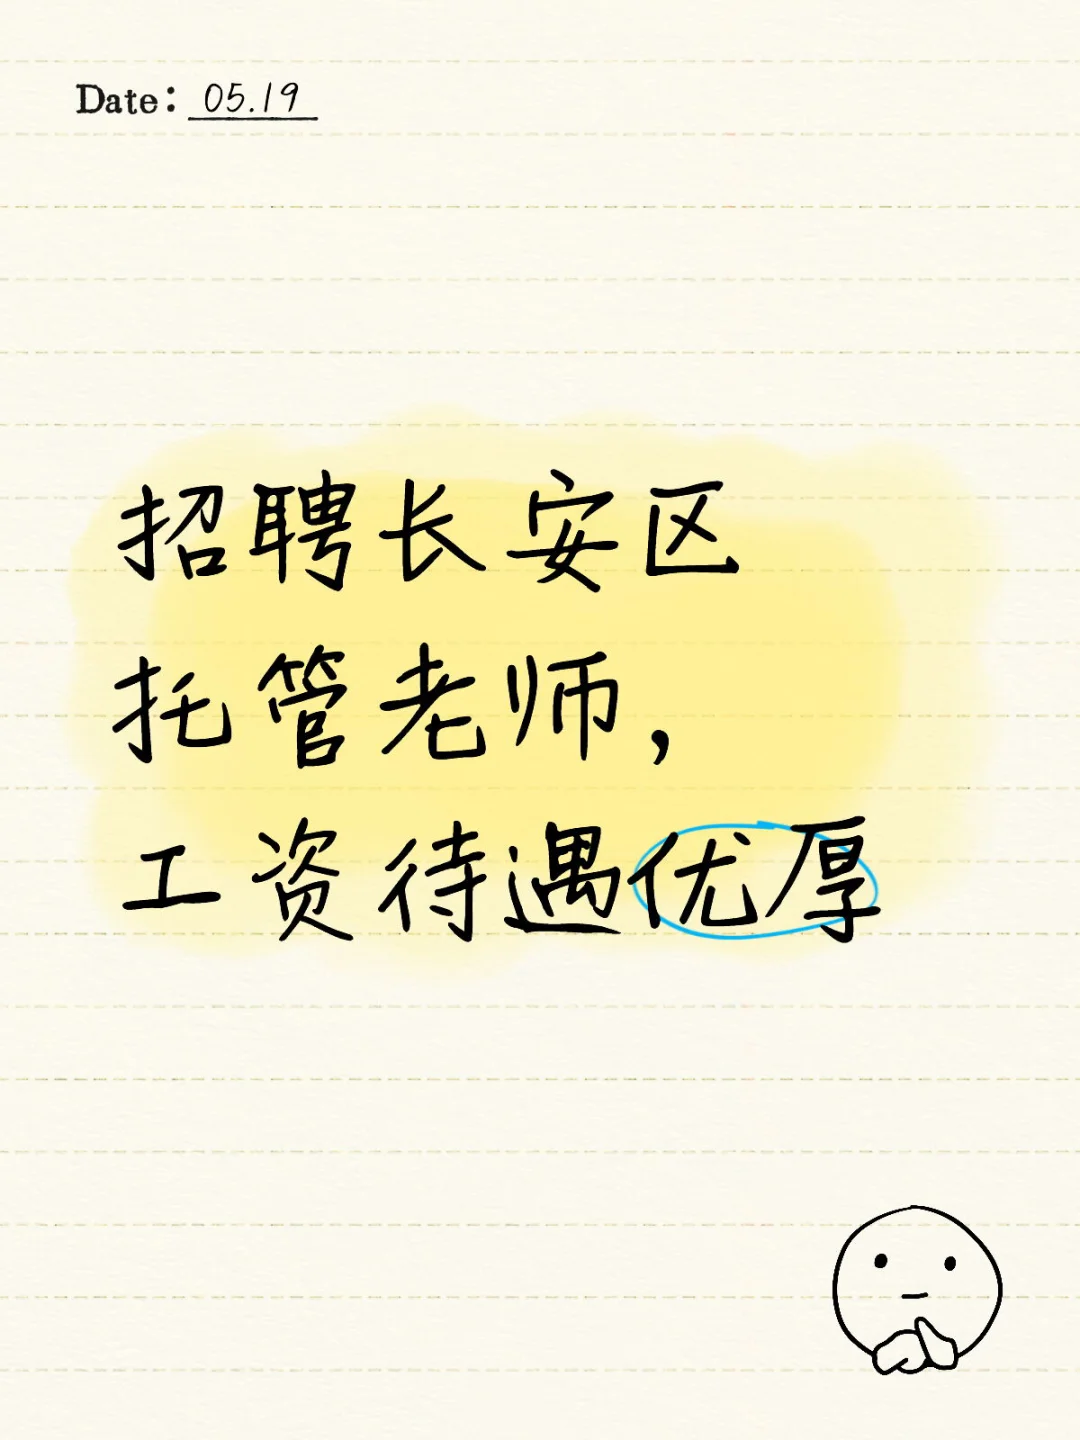 Date: 05.19
招聘长安区
托管老师，
工资待遇优厚